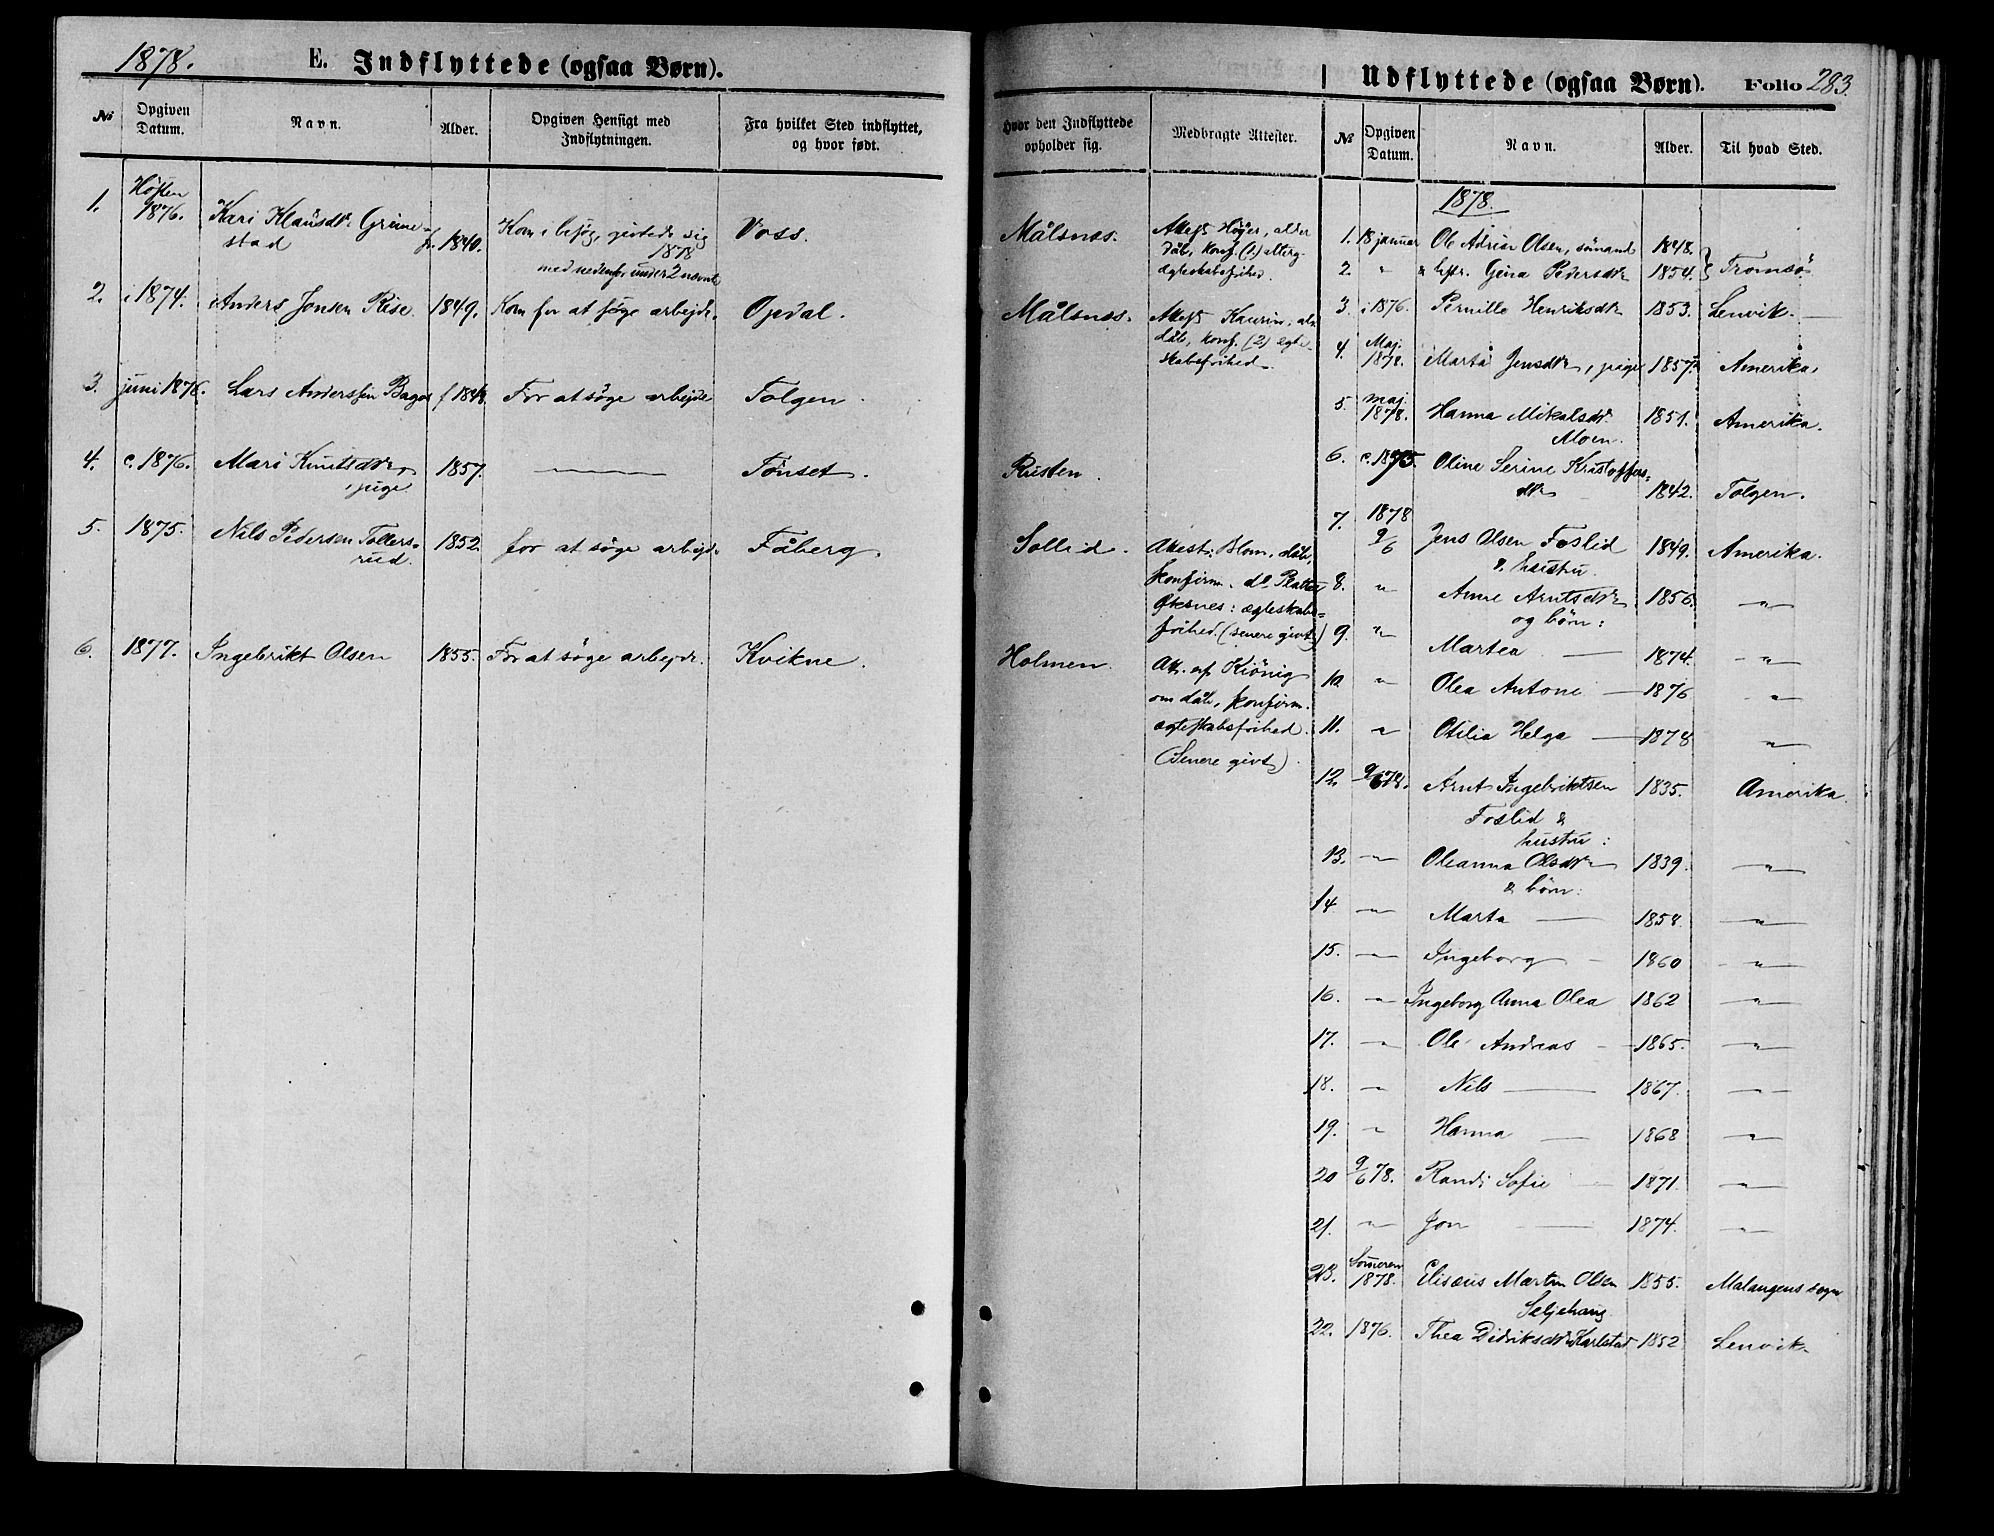 1878.
E. Indflyttede (ogsaa Børn).
№
Opgiven Datum.
Navn.
Alder.
Opgiven Hensigt med Indflytningen.
Fra hvilket Sted indflyttet, og hvor født.
1. Høsten 1876. Kari Klausdtr Grime- f. 1840. Kom i besøg, giftede sig Voss.
stad 1878
med nedenfor under 2 nævnte
2. i 1874. Anders Jonsen Rise 1849. Kom for at søge arbejde. Opdal.
3. juni 1876. Lars Anderssen f 1848. For at søge arbejde Tolgen.
4. c. 1876. Mari Knutsdtr, 1857. — " — Tønset.
pige
5. 1875. Nils Pedersen Tollers- 1852. for at søge arbejde Fåberg.
rud.
6. 1877. Ingebrikt Olsen 1855. For at søge arbejde. Kvikne.
Udflyttede (ogsaa Børn). Folio 283.
Hvor den Indflyttede opholder sig.
Medbragte Attester.
№
Opgiven Datum.
Navn.
Alder.
Til hvad Sted.
Målsnes. Attest Høyer, alder
dåb, konf. (1) alterg.
ægteskabsfrihed.
Målsnes. Attest Kaurin, ald.
dåb, konf. (2) egte-
skabsfrihed.
Rusten.
Sollid. Attest: Blom, dåb,
konfirm. do
: ægteskabs-
frihed. (senere givt)
Holmen. Att. af Kiönig
om dåb, konfirm.
ægteskabsfrihed.
(Senere givt)
1878.
1. 18 januar Ole Adrian Olsen, sömand 1848.
2. " & hstr. Gina Pedersdtr 1854. } Tromsö
3. i 1876. Pernille Henriksdtr 1853. Lenvik.
4. Maj. 1878. Marta Jensdtr, pige 1857. Amerika.
5. maj. 1878. Hanna Mikalsdtr 1851. Amerika.
Moen.
6. c. 1875. Oline Serine Kristoffers-
dtr 1842. Tolgen.
7. 1878 9/6 Jens Olsen Foslid 1849. Amerika.
& haustru.
8. " Anne Arntsdtr 1856. — " —
og börn:
9. " Martea — 1874. — " —
10. " Olea Antone — 1876 "
11. " Otilia Helga — 1878 "
12. 9/6 78. Arnt Ingebriktsen 1835. Amerika.
Foslid &
hustru:
13. — " Oleanna Olsdtr 1839. — " —
& börn:
14. — " — Marta — 1858. — " —
15. — " — Ingeborg — 1860 — " —
16. — " Ingeborg Anna Olea 1862 — " —
17. — " — Ole Andreas — 1865. — " —
18. " Nils — 1867. — " —
19. " Hanna — 1868 — " —
20 9/6 78. Randi Sofie — 1871. — " —
21. — " — Jon — 1874. — " —
23. Sommeren 1878. Elisæus Martin Olsen 1855. Malangens sogn
Seljehaug.
22. 1876. Thea Didriksdtr Karlstad 1852 Lenvik.